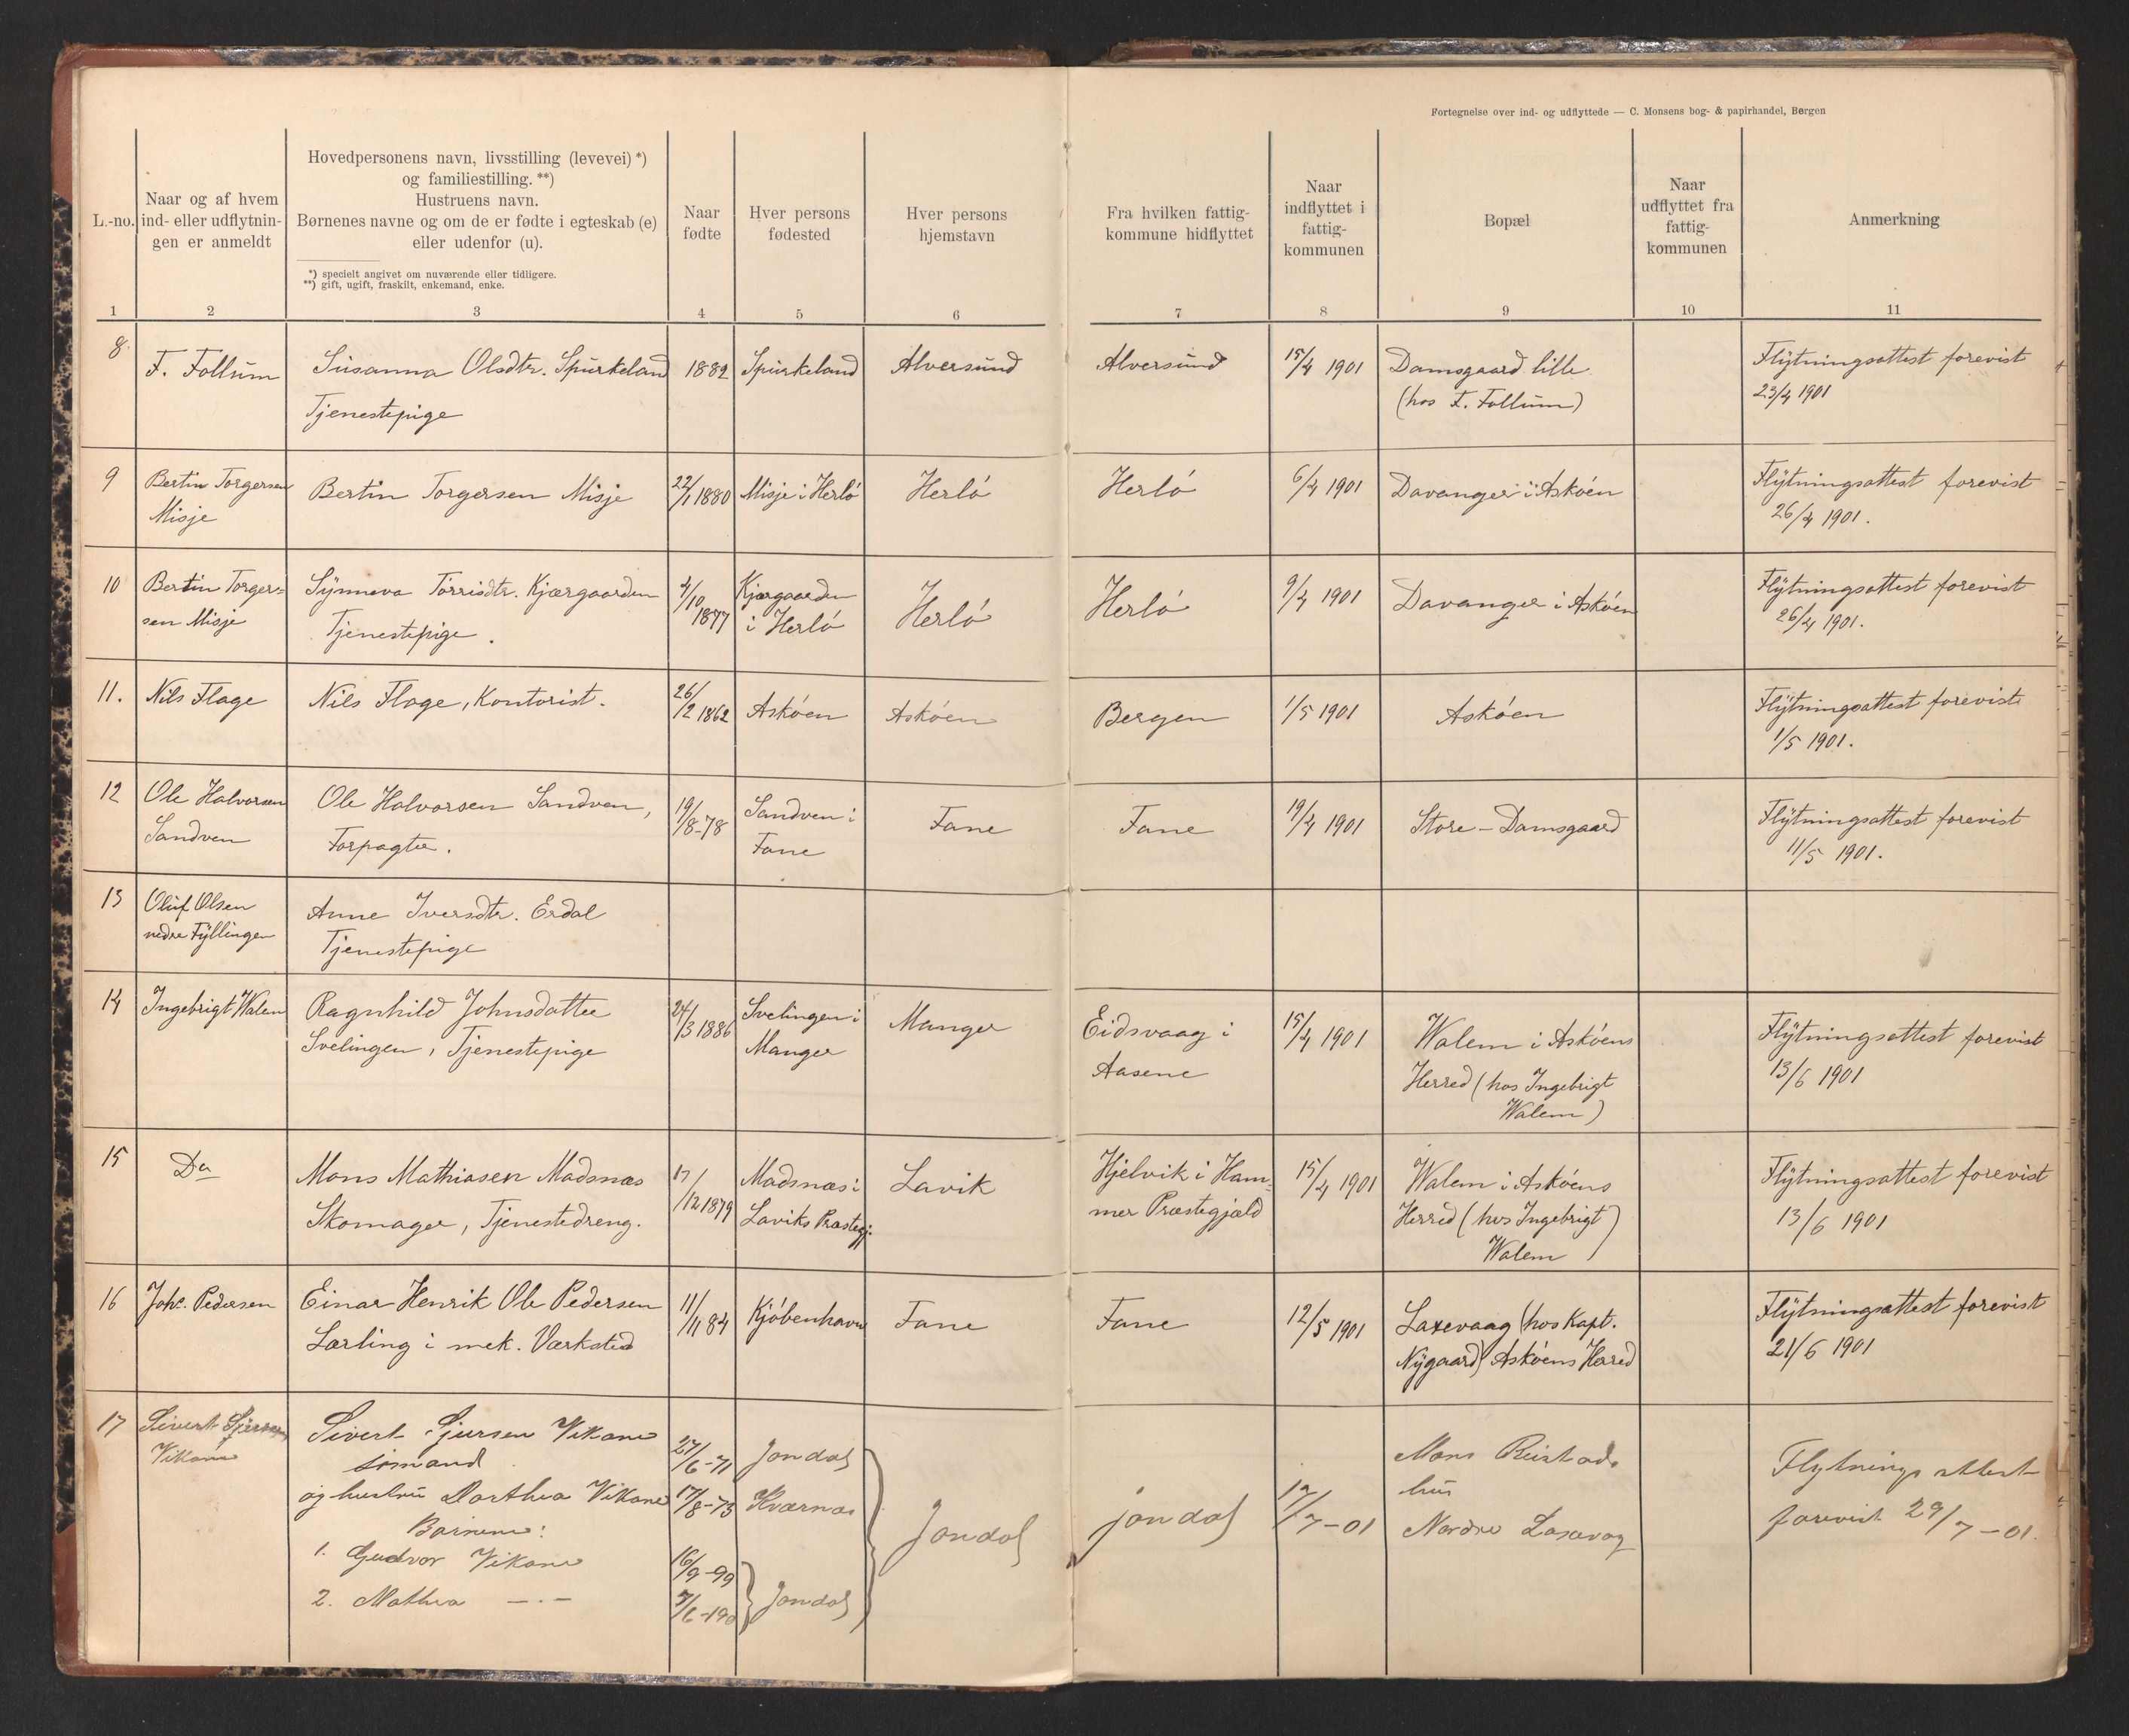 Fortegnelse over ind- og udflyttede — C. Monsens bog- & papirhandel, Bergen
L.-no.
Naar og af hvem
ind- eller udflytnin-
gen er anmeldt
Hovedpersonens navn, livsstilling (levevei) *)
og familiestilling. **)
Hustruens navn.
Børnenes navne og om de er fødte i egteskab (e)
eller udenfor (u).
*) specielt angivet om nuværende eller tidligere.
**) gift, ugift, fraskilt, enkemand, enke.
Naar
fødte
Hver persons
fødested
Hver persons
hjemstavn
Fra hvilken fattig-
kommune hidflyttet
Naar
indflyttet i
fattig-
kommunen
Bopæl
Naar
udflyttet fra
fattig-
kommunen
Anmerkning
1 2 3 4 5 6 7 8 9 10 11
8.
F. Follum
Susanna Olsdtr. Spurkeland
Tjenestepige
1882
Spurkeland
Alversund
Alversund
15/4 1901
Damsgaard lille
(hos F. Follum)
Flytningsattest forevist
23/4 1901
9
Bertin Torgersen
Misje
Bertin Torgersen Misje
22/1 1880
Misje i Herlö
Herlö
Herlö
6/4 1901
Davanger i Asköen
Flytningsattest forevist
26/4 1901.
10
Bertin Torger=
sen Misje
Synneva Torrisdtr. Kjærgaarden
Tjenestepige.
4/10
1877
Kjærgaarden
i Herlö
Herlö
Herlö
9/4 1901
Davanger i Asköen
Flytningsattest forevist
26/4 1901.
11.
Nils Flage
Nils Flage, Kontorist.
26/2 1862
Asköen
Asköen
Bergen
1/5 1901
Asköen
Flytningsattest forevist
1/5 1901.
12
Ole Halvorsen
Sandven
Ole Halvorsen Sandven,
Forpagter.
19/8-78
Sandven i
Fane
Fane
Fane
19/4 1901
Store - Damsgaard
Flytningsattest forevist
11/5 1901.
13
Oluf Olsen
nedre Fyllingen
Anne Iversdtr. Erdal
Tjenestepige
14
Ingebrigt Walem
Ragnhild Johnsdatter
Svelingen, Tjenestepige
24/3 1886
Svelingen i
Manger
Manger
Eidsvaag i
Aasene
15/4 1901
Walem i Asköens
Herred (hos Ingebrigt
Walem)
Flytningsattest forevist
13/6 1901
15
Do
Mons Mathiasen Madsnæs
Skomager, Tjenestedreng.
17/12 1879
Madsnæs i
Laviks Præstegj.
Lavik
Hjelvik i Ham=
mer Præstegjæld
15/4 1901
Walem i Asköens
Herred (hos Ingebrigt
Walem)
Flytningsattest forevist
13/6 1901
16
Johs. Pedersen
Einar Henrik Ole Pedersen
Lærling i mek. Værksted
11/11 84
Kjöbenhavn
Fane
Fane
12/5 1901
Laxevaag (hos Kapt.
Nygaard) Asköens Herred
Flytningsattest forevist
21/6 1901
17
Sivert Sjursen
Vikane
Sivert Sjursen Vikane
sömand
og hustru Dorthea Vikane
Börnene:
1. Gudvor Vikane
2. Mathea — . —
27/6-71
17/8-73
16/9-99
7/6-190
Jondal
Kværnæs
Jondal
Jondal
Jondal
17/7-01
Mons Reistads
hus
Nordre Laxevag
Flytnings attest
forevist 29/7-01.